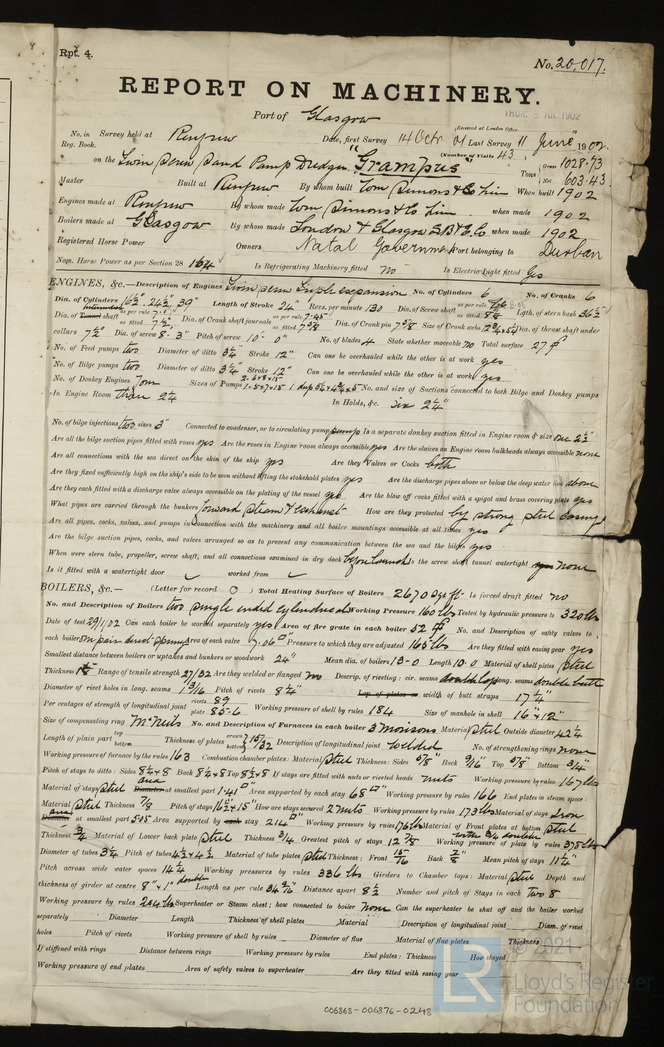 Rpt. 4.
No. 20,017.
REPORT ON MACHINERY.
Port of Glasgow
THUR. 3 JUL 1902
Received at London Office
No. in Survey held at Renfrew Date, first Survey 14 Octr 01 Last Survey 11 June 1902
Reg. Book. (Number of Visits 43)
on the Twin Screw Sand Pump Dredger "Grampus" Tons Gross 1028.73 Net 603.43
Master Built at Renfrew By whom built Wm Simons & Co Lim When built 1902
Engines made at Renfrew By whom made Wm Simons & Co Lim when made 1902
Boilers made at Glasgow By whom made London & Glasgow E & I. S. B. Co when made 1902
Registered Horse Power Owners Natal Government Port belonging to Durban
Nom. Horse Power as per Section 28 164 Is Refrigerating Machinery fitted no Is Electric Light fitted Yes
ENGINES, &c.—Description of Engines Twin screw triple expansion No. of Cylinders 6 No. of Cranks 6
Dia. of Cylinders 16½" 24½" 39" Length of Stroke 24" Revs. per minute 130 Dia. of Screw shaft as per rule as fitted Lgth. of stern bush 36½"
Dia. of Tunnel shaft as per rule as fitted 7½" Dia. of Crank shaft journals as per rule 7.45" as fitted 7⅝" Dia. of Crank pin 7⅝" Size of Crank webs Dia. of thrust shaft under
collars 7½" Dia. of screw 8'-3" Pitch of screw 10'-0" No. of blades 4 State whether moveable no Total surface 27 ft
No. of Feed pumps two Diameter of ditto 3¼" Stroke 12" Can one be overhauled while the other is at work yes
No. of Bilge pumps two Diameter of ditto 3¼" Stroke 12" Can one be overhauled while the other is at work yes
No. of Donkey Engines Four Sizes of Pumps No. and size of Suctions connected to both Bilge and Donkey pumps
In Engine Room three 2¼" In Holds, &c. six 2¼"
No. of bilge injections two sizes 5" Connected to condenser, or to circulating pump pump Is a separate donkey suction fitted in Engine room & size one 2½"
Are all the bilge suction pipes fitted with roses yes Are the roses in Engine room always accessible yes Are the sluices on Engine room bulkheads always accessible none
Are all connections with the sea direct on the skin of the ship yes Are they Valves or Cocks both
Are they fixed sufficiently high on the ship's side to be seen without lifting the stokehold plates yes Are the discharge pipes above or below the deep water line above
Are they each fitted with a discharge valve always accessible on the plating of the vessel yes Are the blow off cocks fitted with a spigot and brass covering plate yes
What pipes are carried through the bunkers forward steam & exhaust How are they protected by strong steel casing
Are all pipes, cocks, valves, and pumps in connection with the machinery and all boiler mountings accessible at all times yes
Are the bilge suction pipes, cocks, and valves arranged so as to prevent any communication between the sea and the bilges yes
When were stern tube, propeller, screw shaft, and all connections examined in dry dock before launch Is the screw shaft tunnel watertight none
Is it fitted with a watertight door worked from
BOILERS, &c.— (Letter for record O) Total Heating Surface of Boilers 2670 sq ft Is forced draft fitted no
No. and Description of Boilers two single ended cylindrical Working Pressure 160 lbs Tested by hydraulic pressure to 320 lbs
Date of test 29/1/02 Can each boiler be worked separately yes Area of fire grate in each boiler 52 ft No. and Description of safety valves to
each boiler one pair direct spring Area of each valve 7.06" Pressure to which they are adjusted 165 lbs Are they fitted with easing gear yes
Smallest distance between boilers or uptakes and bunkers or woodwork 24" Mean dia. of boilers 13-0 Length 10.0 Material of shell plates Steel
Thickness Range of tensile strength 27/32 Are they welded or flanged no Descrip. of riveting: cir. seams double lap long. seams double butt
Diameter of rivet holes in long. seams 1 3/16 Pitch of rivets 8¼" Lap of plates or width of butt straps 17¼"
Per centages of strength of longitudinal joint rivets 89 plate 85.6 Working pressure of shell by rules 184 Size of manhole in shell 16" x 12"
Size of compensating ring McNeils No. and Description of Furnaces in each boiler 3 morisons Material steel Outside diameter 42¼
Length of plain part top bottom Thickness of plates crown bottom 15/32 Description of longitudinal joint welded No. of strengthening rings none
Working pressure of furnace by the rules 163 Combustion chamber plates: Material steel Thickness: Sides ⅝" Back 9/16" Top ⅝" Bottom ¾"
Pitch of stays to ditto: Sides 8¼ x 8 Back 8¼ x 8 Top 8¼ x 8 If stays are fitted with nuts or riveted heads nuts Working pressure by rules 167 lbs
Material of stays steel Diameter area at smallest part 1.41" Area supported by each stay 68" Working pressure by rules 166 End plates in steam space:
Material steel Thickness ⅞ Pitch of stays 16½ x 15" How are stays secured 2 nuts Working pressure by rules 173 lbs Material of stays Iron
Diameter area at smallest part Area supported by each stay 214" Working pressure by rules 176 lbs Material of Front plates at bottom steel
Thickness ¾ Material of Lower back plate steel Thickness ¾ Greatest pitch of stays 12⅞ Working pressure of plate by rules 378 lbs
Diameter of tubes 3¼ Pitch of tubes 4½ x 4½ Material of tube plates steel Thickness: Front 15/16 Back ⅞ Mean pitch of stays 11¼"
Pitch across wide water spaces 14¼ Working pressures by rules 336 lbs Girders to Chamber tops: Material steel Depth and
thickness of girder at centre 8" x 1" double Length as per rule Distance apart 8½ Number and pitch of Stays in each two 8
Working pressure by rules 204 lbs Superheater or Steam chest; how connected to boiler none Can the superheater be shut off and the boiler worked
separately Diameter Length Thickness of shell plates Material Description of longitudinal joint Diam. of rivet
holes Pitch of rivets Working pressure of shell by rules Diameter of flue Material of flue plates Thickness
If stiffened with rings Distance between rings Working pressure by rules End plates: Thickness How stayed
Working pressure of end plates Area of safety valves to superheater Are they fitted with easing gear
© 2021
LR
Lloyd's Register
Foundation
006868-006876-0248